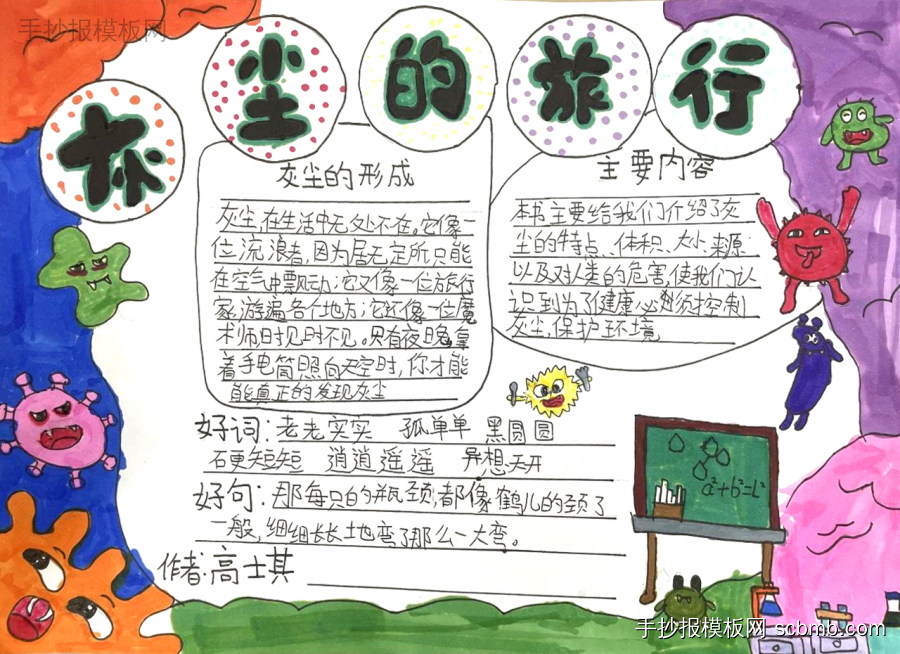 手抄报模板网
灰尘的旅行
灰尘的形成
灰尘,在生活中无处不在。它像一
位流浪者,因为居无定所只能
在空气中飘动;它又像一位旅行
家,游遍各个地方;它还像一位魔
术师时现时不见。只有夜晚,拿
着手电筒照向天空时,你才能
能真正的发现灰尘
主要内容
本书主要给我们介绍了灰
尘的特点、体积、大小、来源
以及对人类的危害,使我们认
识到为了健康,必须控制
灰尘,保护环境
好词:老老实实 孤单单 黑圆圆
石更短短 逍逍遥遥 异想天开
好句:那每只的瓶颈,都像鹤儿的颈了
一般,细细长长地弯了那么一大弯。
作者:高士其
a²+b²=L²
手抄报模板网 scbmb.com